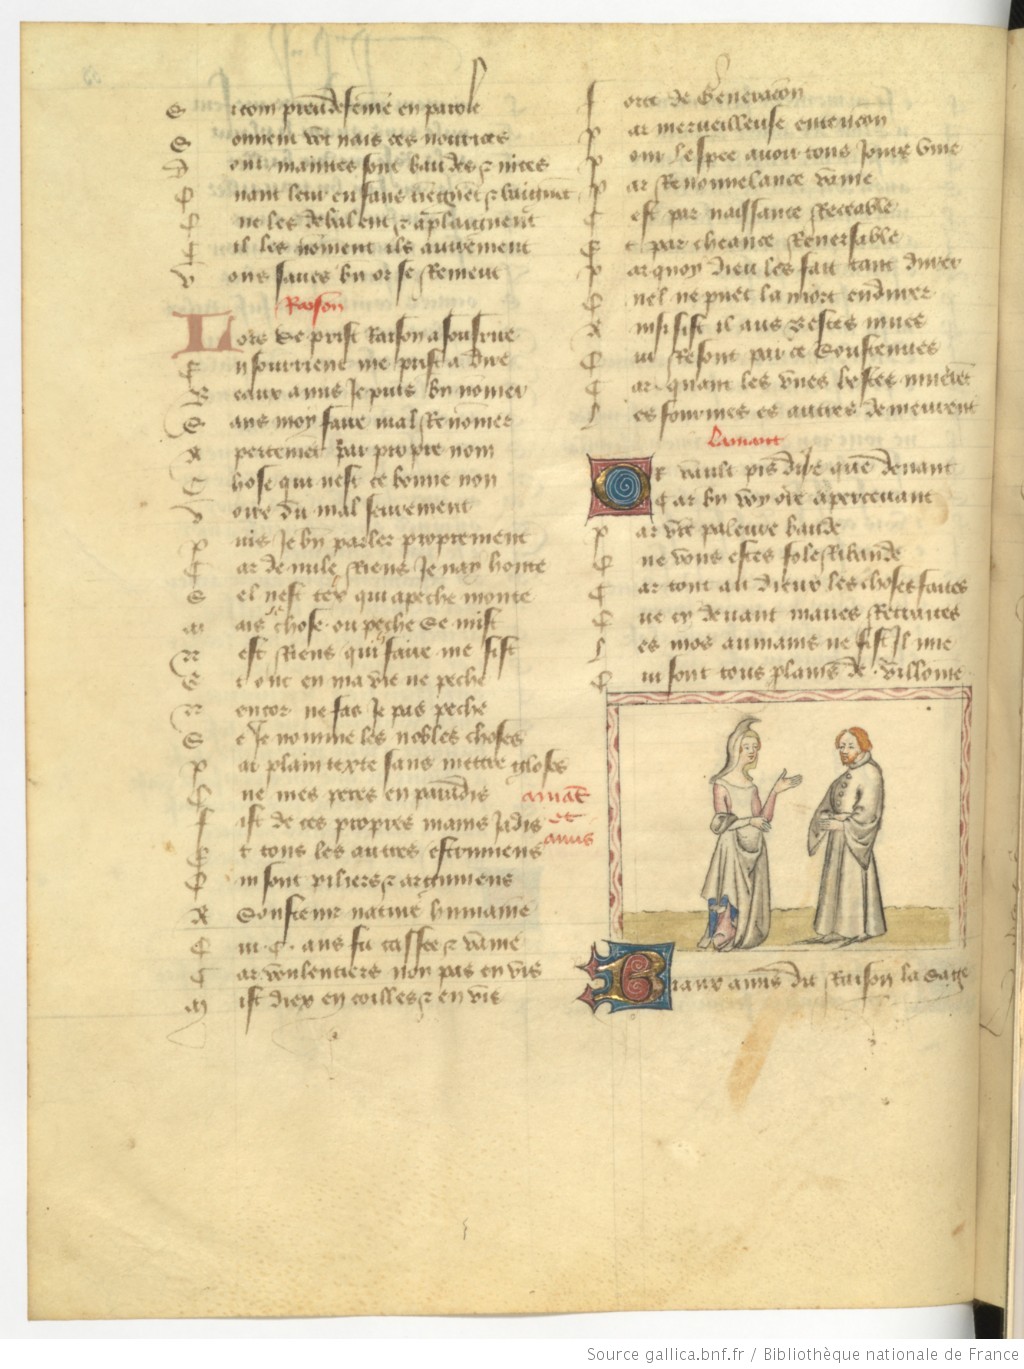 S icom preudefeme en parole
S onnent vo't nais ces nourices
D ont maintes sont baudes et nices
Q uant leur enfans tiegnent et baignent
Q ue les debalent et aplaignent
C il les noment ils autrement
V ous saves bn or se Rement
Raison
Lors se prist Raison a sousrire
E n sourrient me prist a dire
B eaux amis Je puis bn nomer
S ans moy faire mal Renomer
A pertemet par propre nom
C hose qui nest ce bonne non
V oire du mal seurement
P uis Je bn parler proprement
C ar de nule Riens Je nay honte
S el nest tex qui a peche monte
M ais chose ou peche se mist
N est Riens qui faire me fist
E t onc en ma vie ne peche
N encor ne fas Je pas peche
S e Je nomme les nobles choses
P ar plain texte sans mettre gloses
Q ue mes peres en paradis
amat et amis
F ist de ces propres mains Jadis
E t tons les autres estrumens
Q ui sont piliers et argumens
A Soustenir nature humaine
Q ui .C. ans fu cassee et vaine
C ar voulentiers non pas envis
M ist diex en coilles et en vis
F orce de Generacon
P ar merveilleuse entencon
P our lespee avoir tous Jours vive
P ar Renouvelance
C est par naissance Receable
E t par cheance Reversable
P ar quoy dieu les fait tant durer
Q uel ne puet la mort endurer
A insi fist il aus Bestes mues
Q ui Resont par ce Soustenues
C ar quant les unes bestes muerent
L es fourmes es autres demeurent
Lamant
Or vault pis dire que devant
C ar bn voy ore apercevant
P ar vre paleure baude
Q ue vous estes fole Ribaude
C ar tout ait dieux les choses faites
Q ue cy devant maves Retraites
L es mos aumains ne fist Il mie
Q ui sont tous plains de villonie
Biaux amis dit Raison la Sage
Source gallica.bnf.fr / Bibliothèque nationale de France